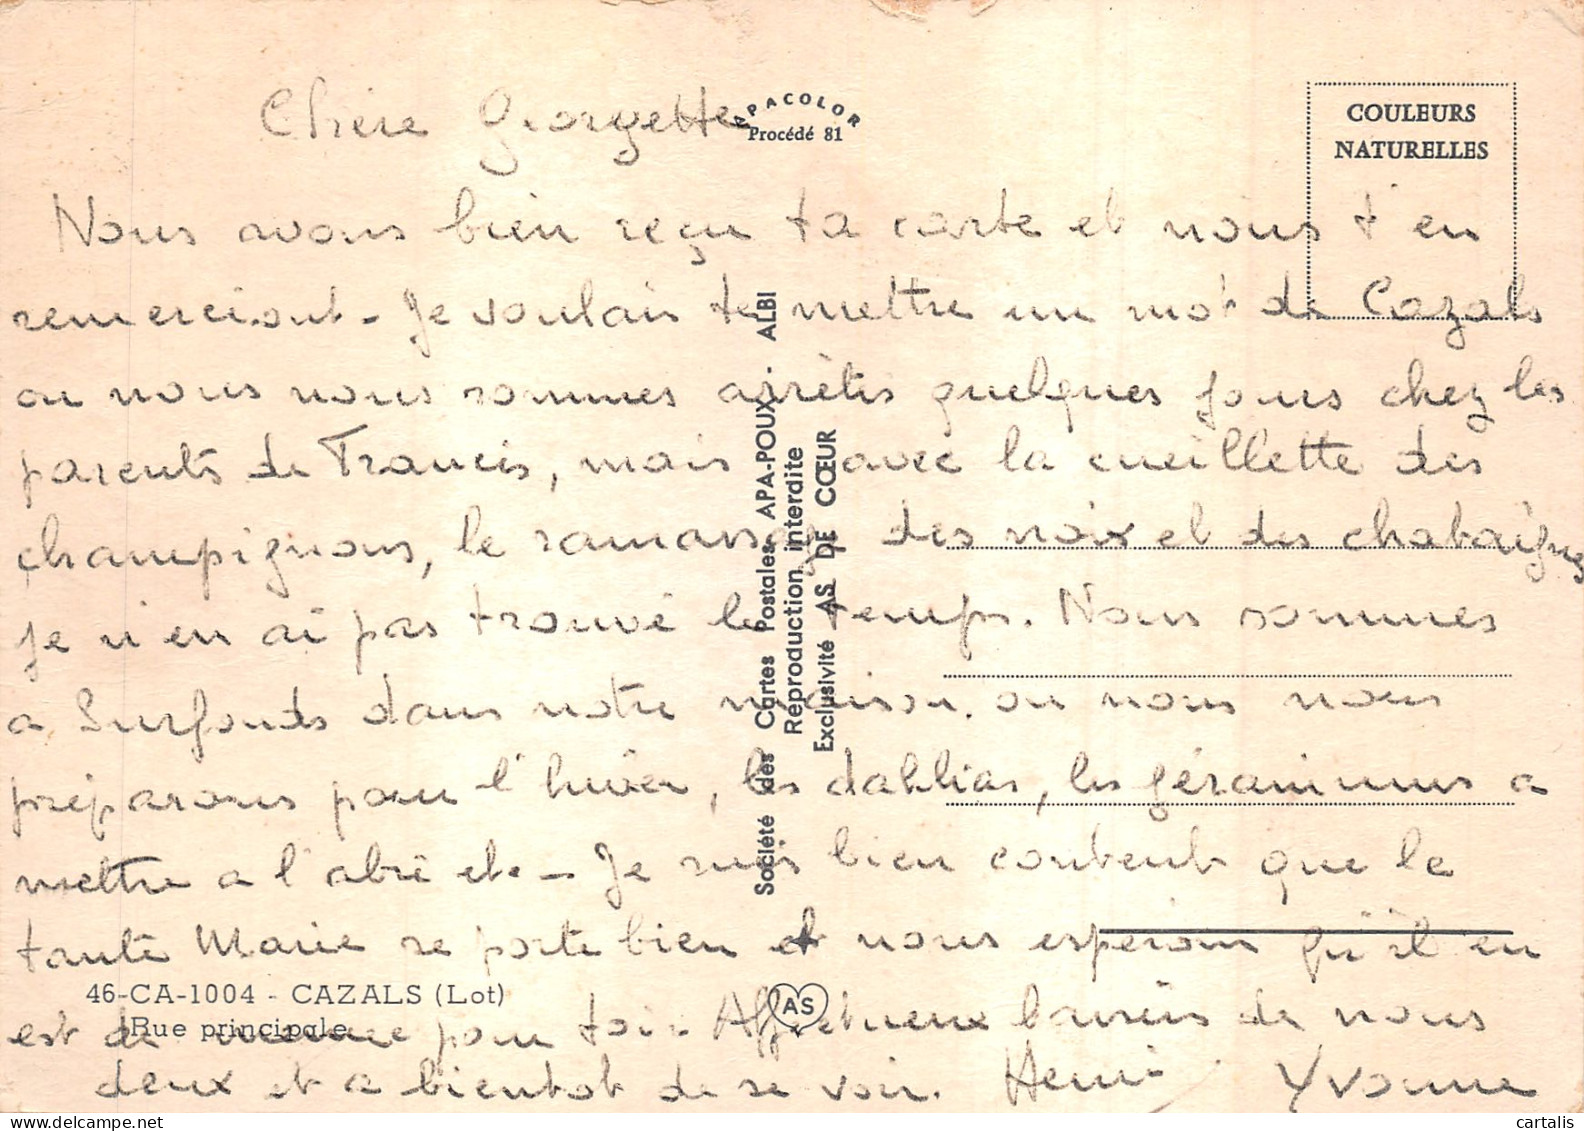 Chère Georgette
APACOLOR
Procédé 81
COULEURS
NATURELLES
Nous avons bien reçu ta carte et nous t'en
remerciont - Je voulais te mettre un mot de Cazals
ou nous nous sommes arrêtés quelques jours chez les
parents de Francis, mais avec la cueillette des
champignons, le ramassage des noix et des chataîgnes
Je n'en ai pas trouvé le temps. Nous sommes
a Surfonds dans notre maison. ou nous nous
préparons pour l'hiver, les dahlias, les géraniums a
mettre a l'abri etc - Je suis bien contente que le
tante Marie se porte bien et nous espérons qu'il en
est de même pour toi. Affectueux baisers de nous
deux et a bientot de se voir. Henri Yvonne
Société des Cartes Postales APA-POUX - ALBI
Reproduction interdite
Exclusivité AS DE CŒUR
46-CA-1004 - CAZALS (Lot)
Rue principale
AS
cartalis